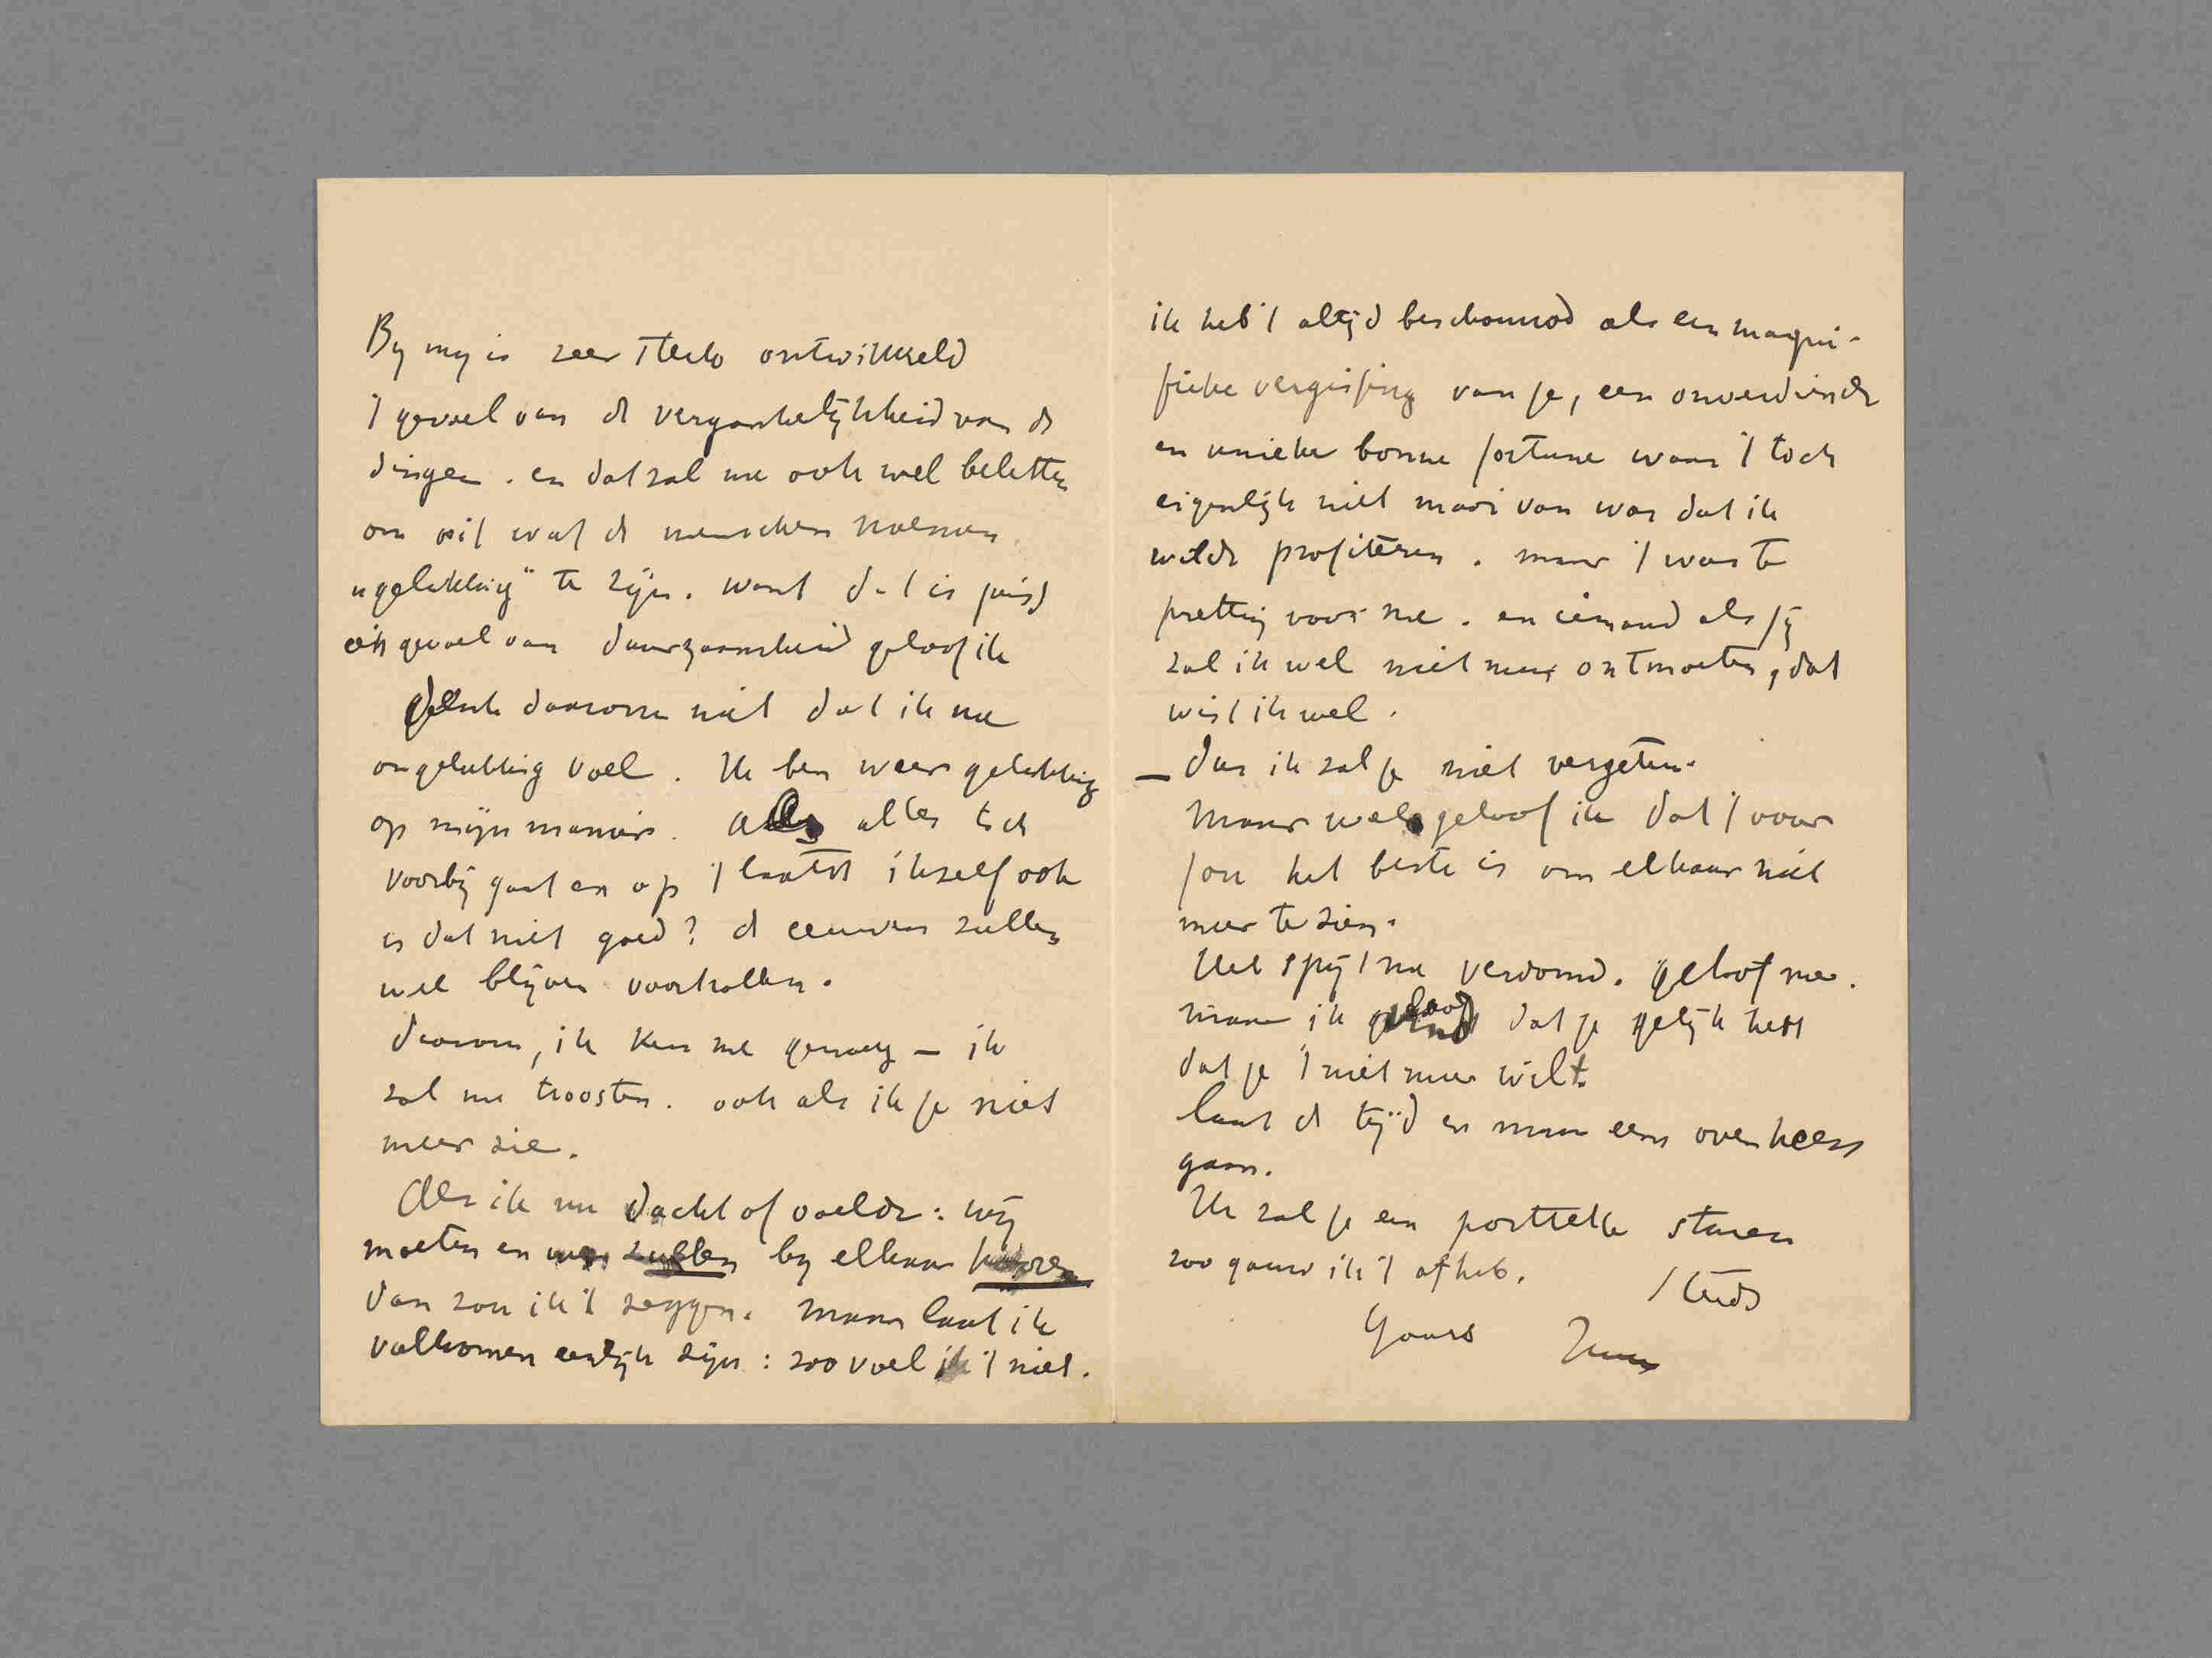 By my is zeer sterk ontwikkeld
't gevoel van de vergankelijkheid van de
dingen. en dat zal me ook wel beletten
om ooit wat de menschen noemen
"gelukkig" te zijn. want dat is juist
één gevoel van duurzaamheid geloof ik
denk daarom niet dat ik me
ongelukkig voel. Ik ben weer gelukkig
op mijn manier. Als alles toch
voorbij gaat en op 't laatst ikzelf ook
is dat niet goed? de eeuwen zullen
wel blijven voorthollen.
daarom, ik ken me genoeg — ik
zal me troosten. ook als ik je niet
meer zie.
Als ik nu dacht of voelde: wij
moeten en wij zullen by elkaar hooren
dan zou ik 't zeggen. maar laat ik
volkomen eerlijk zijn: zoo voel ik 't niet.
ik heb 't altijd beschouwd als een magni-
fieke vergissing van je, een onverdiende
en unieke bonne fortune waar 't toch
eigenlijk niet mooi van was dat ik
wilde profiteren. maar 't was te
prettig voor me. en iemand als jij
zal ik wel niet meer ontmoeten, dat
wist ik wel.
— dus ik zal je niet vergeten.
Maar wel geloof ik dat 't voor
jou het beste is om elkaar niet
meer te zien.
Het spijt me verdomd. geloof me.
maar ik geloof dat je gelijk hebt
dat je 't niet meer wilt.
laat de tijd er maar eens overheen
gaan.
Ik zal je een portretje sturen
zoo gauw ik 't af heb.
Steeds
Yours